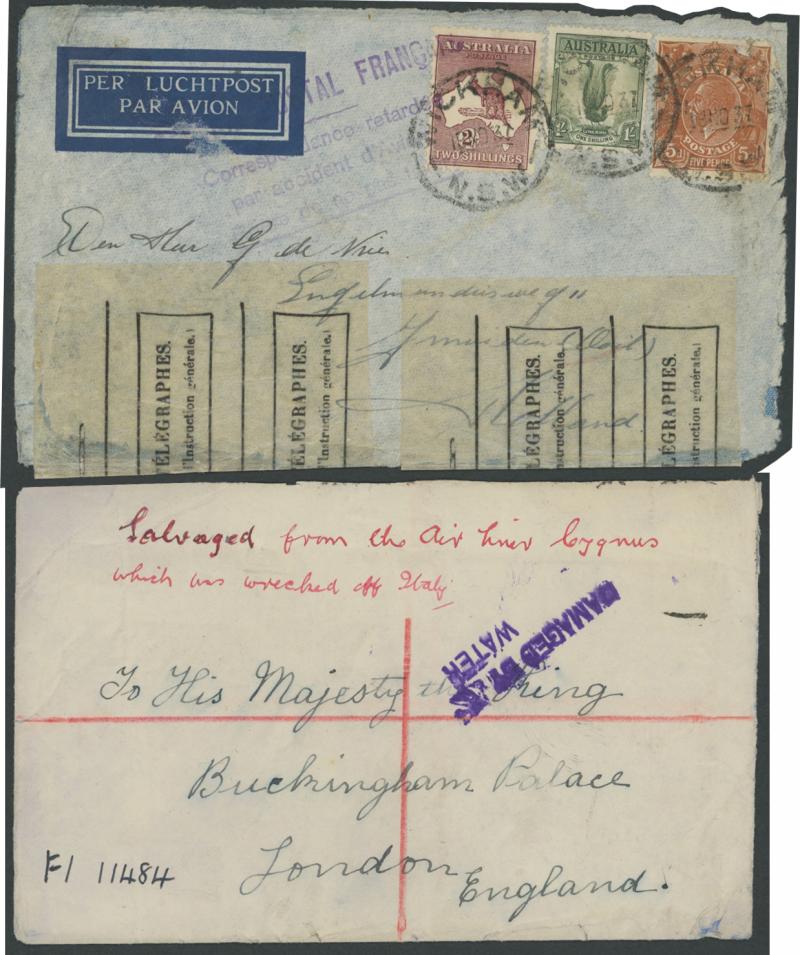 PER LUCHTPOST
PAR AVION
POSTAL FRANÇA
Correspondance retardée
par accident d'Avi
AUSTRALIA
POSTAGE
2/-
TWO SHILLINGS
AUSTRALIA
POSTAGE
1/-
ONE SHILLING
5D
POSTAGE
FIVE PENCE
5D
N.S.W
N.S.W
Den Heer G. de Vries
Engelmundusweg 11
Ymuiden (Oost)
Holland
TÉLÉGRAPHES.
l'Instruction générale.)
TÉLÉGRAPHES.
l'Instruction générale.)
TÉLÉGRAPHES.
l'Instruction générale.)
TÉLÉGRAPHES.
l'Instruction générale.)
Salvaged from the Air liner Cygnus
which was wrecked off Italy
DAMAGED BY
WATER
To His Majesty the King
Buckingham Palace
London
England.
F/ 11484